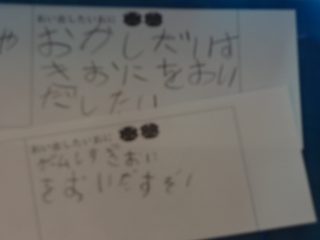 おい出したいおに
おかしだいす
きおにをおい
だしたい
おい出したいおに
ゲームしすぎおに
をおいだすぞ！